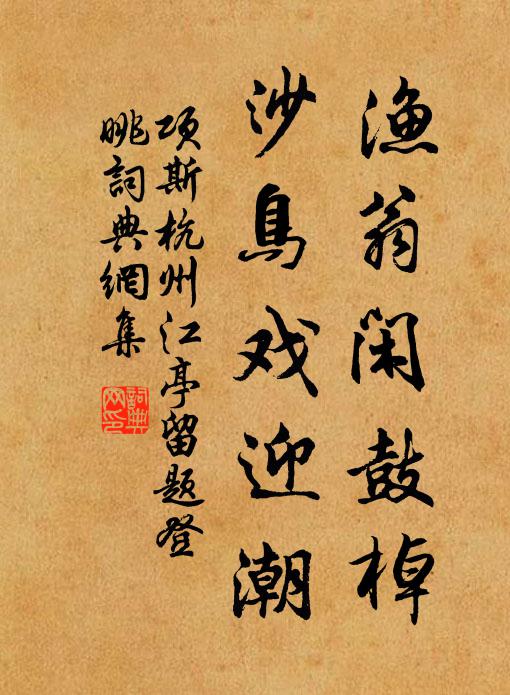 渔翁闲鼓棹
沙鳥戏迎潮
项斯杭州江亭留题登
眺詞典網集
詞典
网印